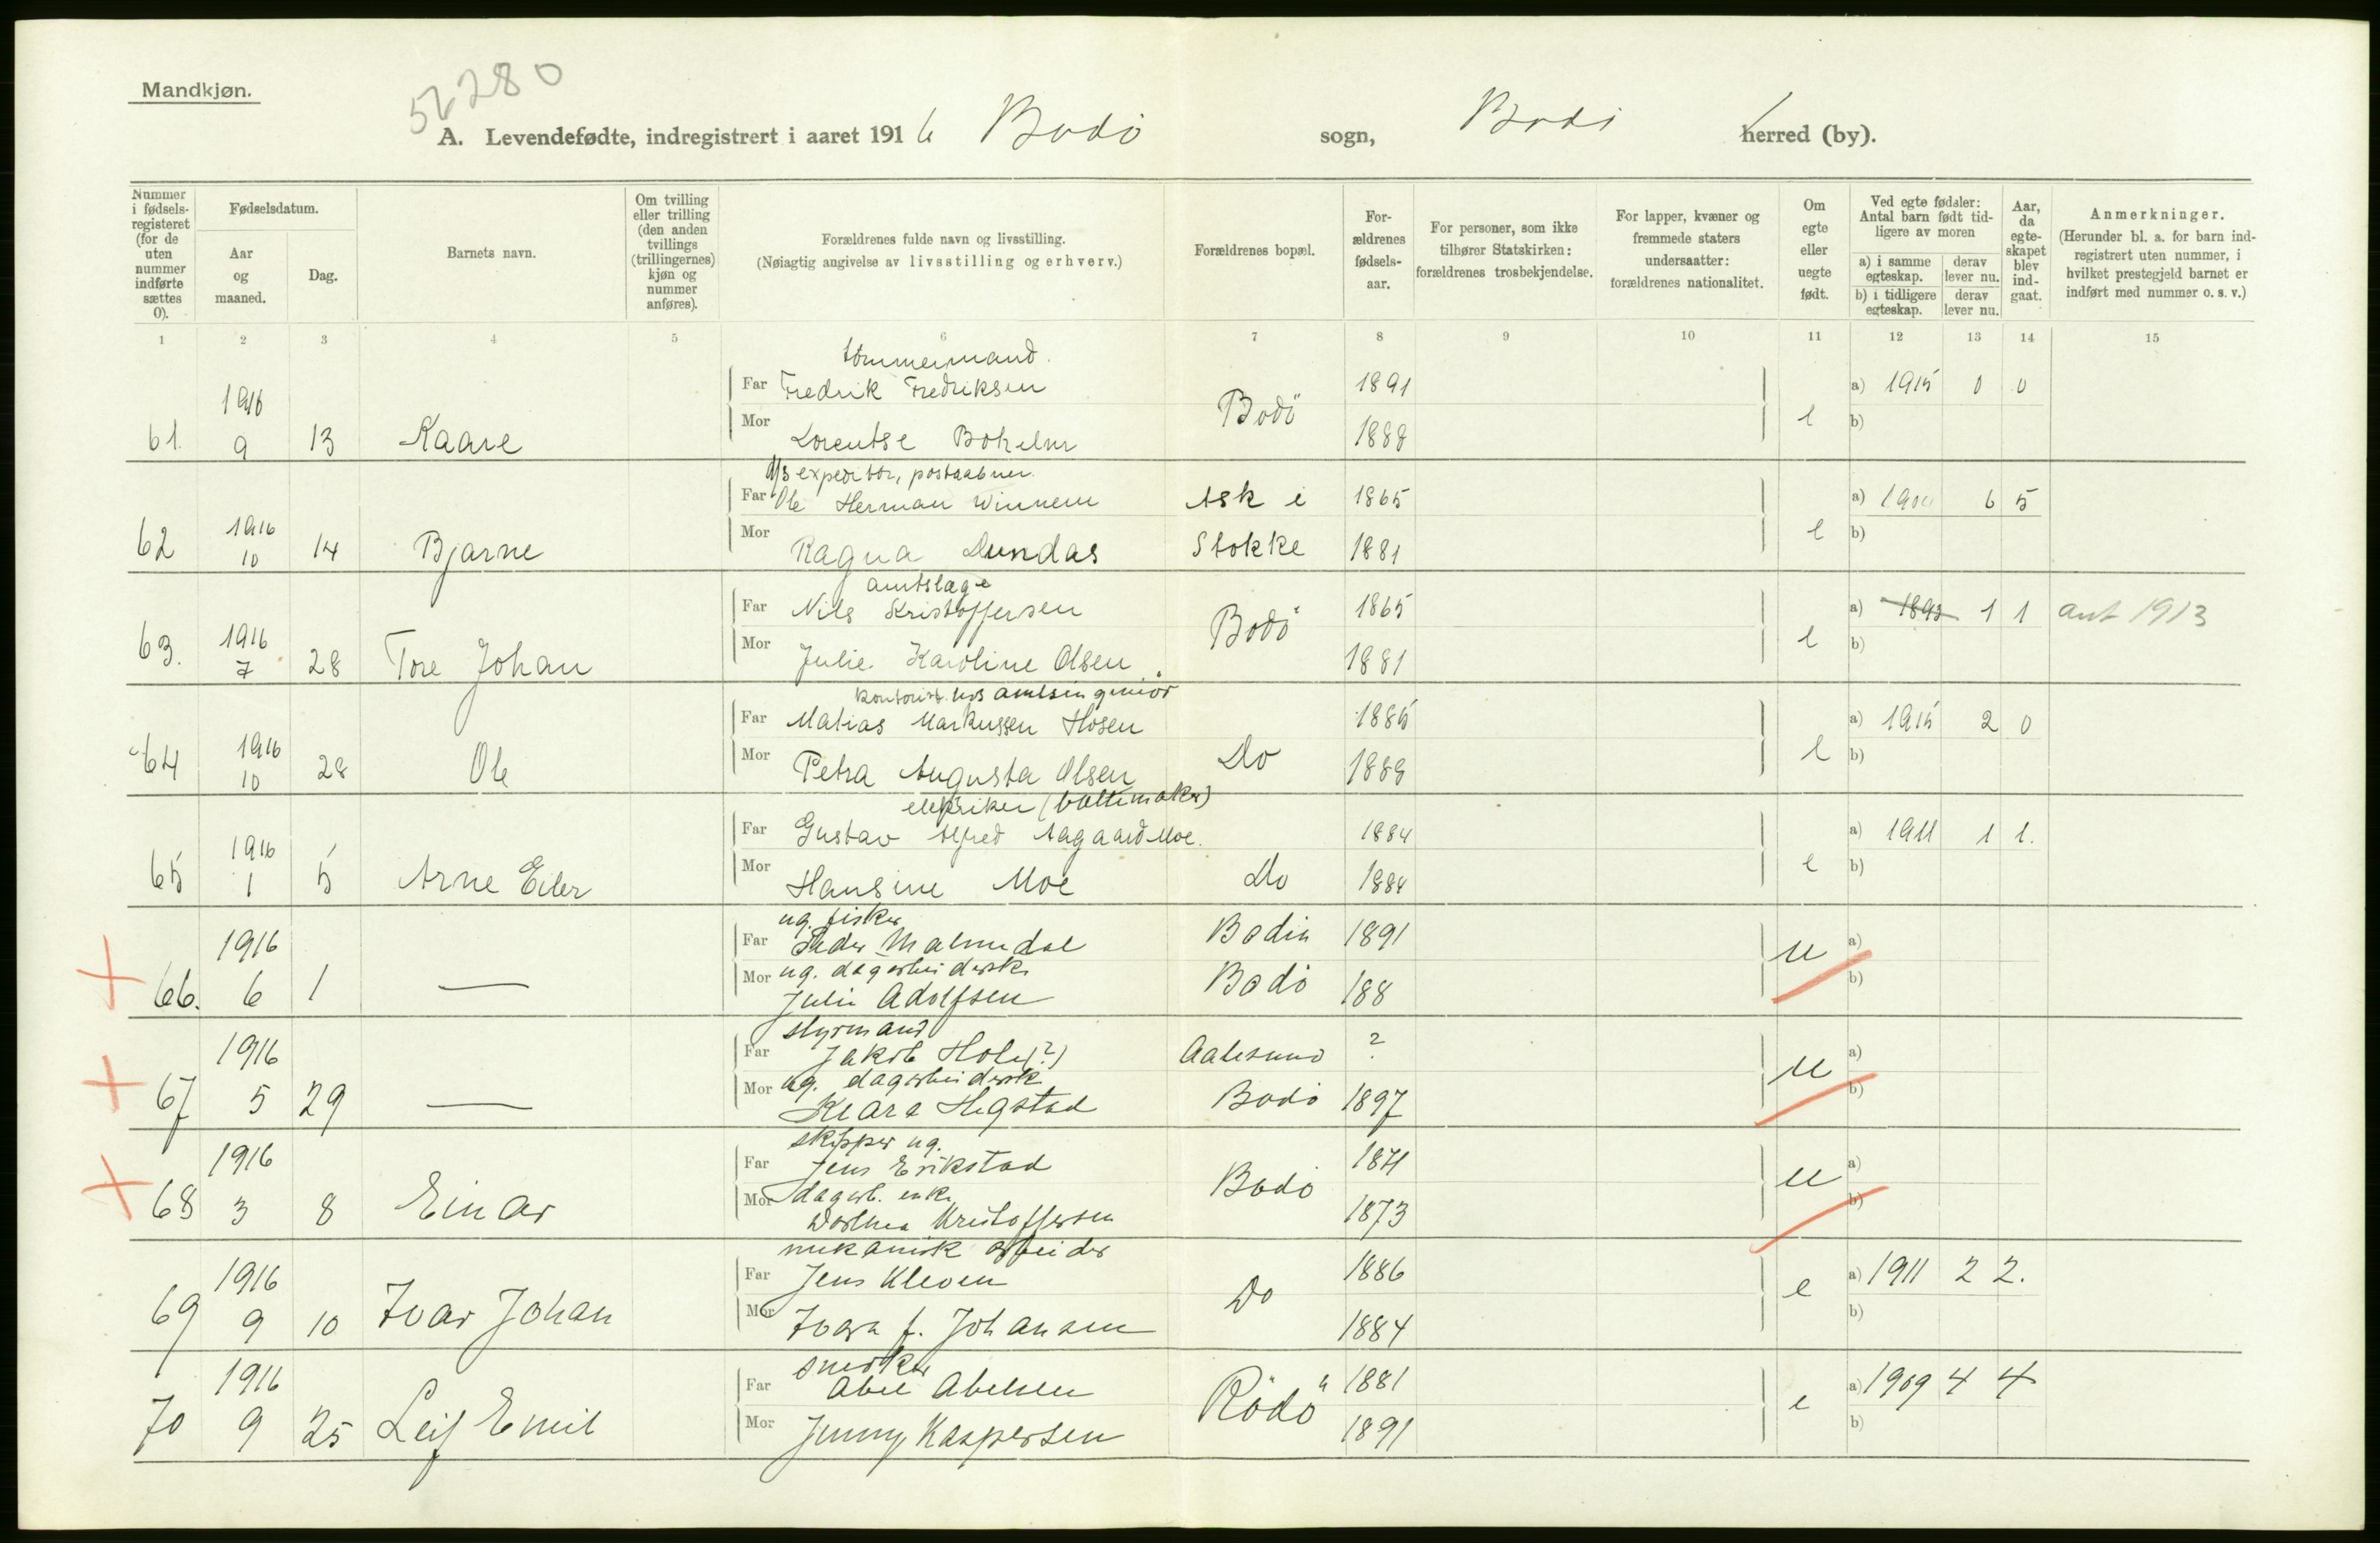 Mandkjøn.
52280
A. Levendefødte, indregistrert i aaret 1916 Bodö sogn, Bodö herred (by).
Nummer i fødselsregisteret (for de uten nummer indførte sættes 0).
Fødselsdatum.
Aar og maaned.
Dag.
Barnets navn.
Om tvilling eller trilling (den anden tvillings (trillingernes) kjøn og nummer anføres).
Forældrenes fulde navn og livsstilling.
(Nøiagtig angivelse av livsstilling og erhverv.)
Forældrenes bopæl.
Forældrenes fødselsaar.
For personer, som ikke tilhører Statskirken: forældrenes trosbekjendelse.
For lapper, kvæner og fremmede staters undersaatter: forældrenes nationalitet.
Om egte eller uegte født.
Ved egte fødsler: Antal barn født tidligere av moren
a) i samme egteskap. derav lever nu.
b) i tidligere egteskap. derav lever nu.
Aar, da egteskapet blev indgaat.
Anmerkninger.
(Herunder bl. a. for barn indregistrert uten nummer, i hvilket prestegjeld barnet er indført med nummer o. s. v.)
1 2 3 4 5 6 7 8 9 10 11 12 13 14 15
tömmermand.
1916 Far Fredrik Fredriksen 1891 a) 1915 0 0
61. 9 13 Kaare Mor Lorentse Bodö 1888 e b)
d/s expeditör, postaabner.
1916 Far Ole Herman Winnem Ask i 1865 a) 6 5
62 10 14 Bjarne Mor Ragna Dundas Stokke 1881 e b)
amtslæge
1916 Far Nils Kristoffersen Bodö 1865 a) 1893 1 1 ant 1913
63. 7 28 Tore Johan Mor Julie Karoline Olsen 1881 e b)
kontorist hos amtsingeniör
1916 Far Matias Markussen Hosen 1885 a) 1915 2 0
64 10 28 Ole Mor Petra Augusta Olsen Do 1889 e b)
elektriker
1916 Far Gustav Alfred Aagaard Moe. 1884 a) 1911 1 1.
65 1 5 Arne Eiler Mor Hansine Moe Do 1884 e b)
ug. fisker
1916 Far Peder Malmedal Bodin 1891 u a)
ug. dagarbeiderske
66. 6 1 — Mor Julie Adolfsen Bodö 188 b)
styrmand
1916 Far Jakob Holm(?) Aalesund ? u a)
ug. dagarbeidersk
67 5 29 — Mor Klara Hegstad Bodö 1897 b)
skipper ug.
1916 Far Jens Erikstad Bodö 1871 u a)
dagarb. enke
68 3 8 Einar Mor Dorthea Kristoffersen 1873 b)
mekanisk arbeider
1916 Far Jens Kleven 1886 a) 1911 2 2.
69 9 10 Ivar Johan Mor Ivara f. Johansen Do 1884 e b)
snedker
1916 Far Abel Abelsen Rödö 1881 a) 1909 4 4
70 9 25 Leif Emil Mor Jenny Kaspersen 1891 e b)